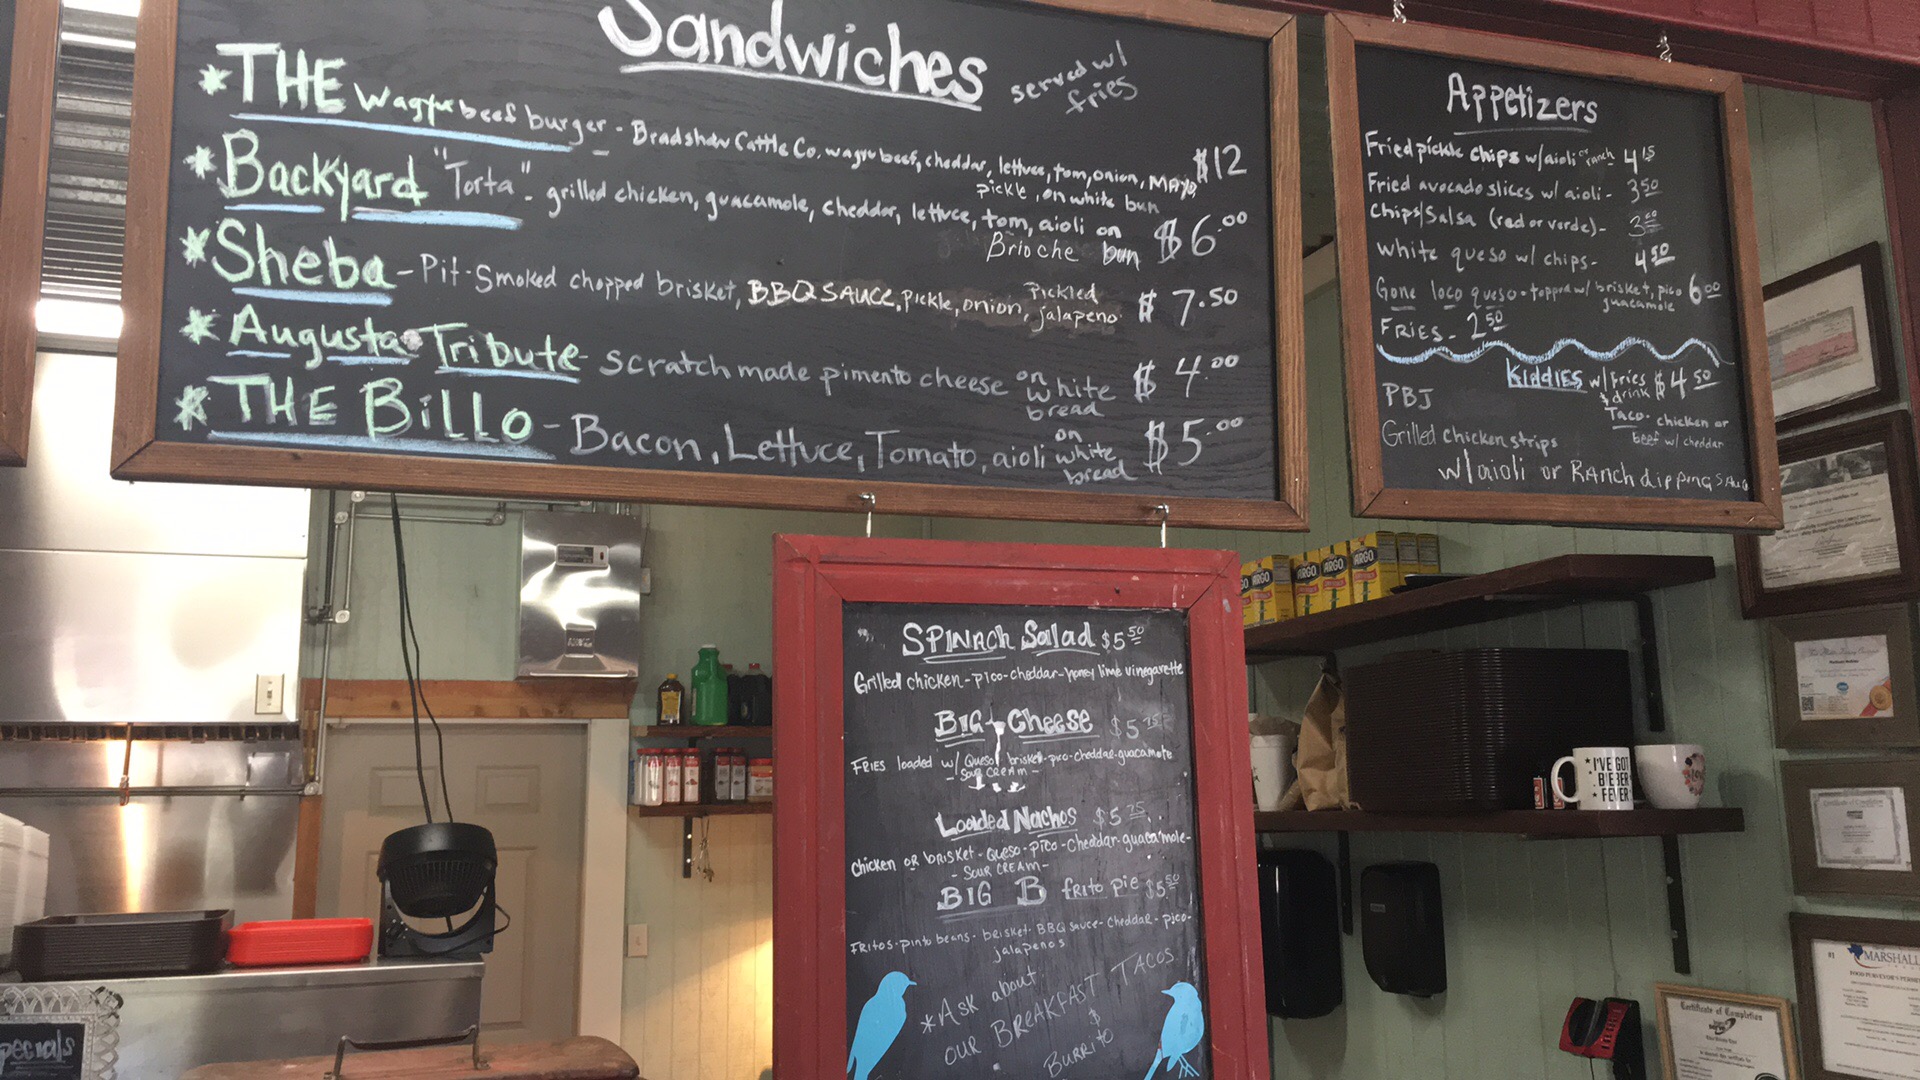 Sandwiches served w/ fries
*THE Wagyu beef burger - Bradshaw Cattle Co. wagyu beef, cheddar, lettuce, tom, onion, MAYO, pickle, on white bun $12
*Backyard "Torta" - grilled chicken, guacamole, cheddar, lettuce, tom, aioli on Brioche bun $6.00
*Sheba - Pit-Smoked chopped brisket, BBQ SAUCE, pickle, onion, Pickled jalapeno $7.50
*Augusta Tribute - scratch made pimento cheese on white bread $4.00
*THE BiLLO - Bacon, Lettuce, Tomato, aioli on white bread $5.00
Appetizers
Fried pickle chips w/ aioli or ranch
Fried avocado slices w/ aioli - 3 50
Chips/Salsa (red or verde) -
White queso w/ chips - 4 50
Gone loco queso - topped w/ brisket, pico guacamole 6 00
FRIES - 2 50
KIDDIES w/ fries & drink $4 50
PBJ
Taco - chicken or beef w/ cheddar
Grilled chicken strips
w/ aioli or RANCH dipping
SPINACH Salad $5 50
Grilled chicken - pico - cheddar - honey lime vinegarette
BIG Cheese $5 75
FRIES loaded w/ Queso brisket - pico - cheddar - guacamole
- Sour CREAM -
Loaded Nachos $5 75
Chicken OR brisket - queso - pico - cheddar - guacamole -
- SOUR CREAM -
BIG B frito pie $5 50
FRITOS - pinto beans - brisket - BBQ sauce - cheddar - pico -
jalapenos
*Ask about
our BREAKFAST TACOS
&
BURRITO
ARGO
ARGO
ARGO
ARGO
I'VE GOT
BIEBER
FEVER
MARSHALL
Certificate of Completion
Certificate of Completion